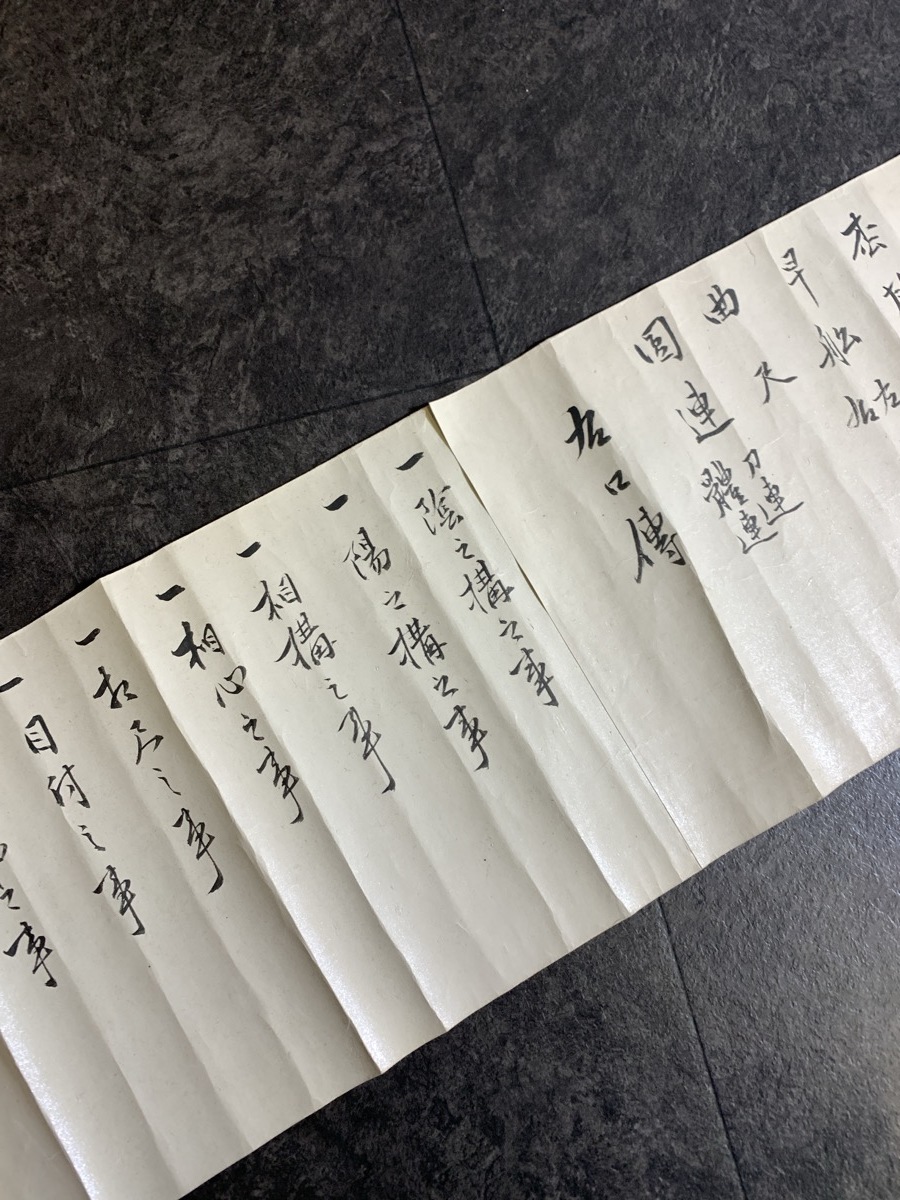 早船
曲尺 刀連
圓連 體連
右口傳
一陰之構之事
一陽之構之事
一相構之事
一相心之事
一
之事
一目付之事
之事